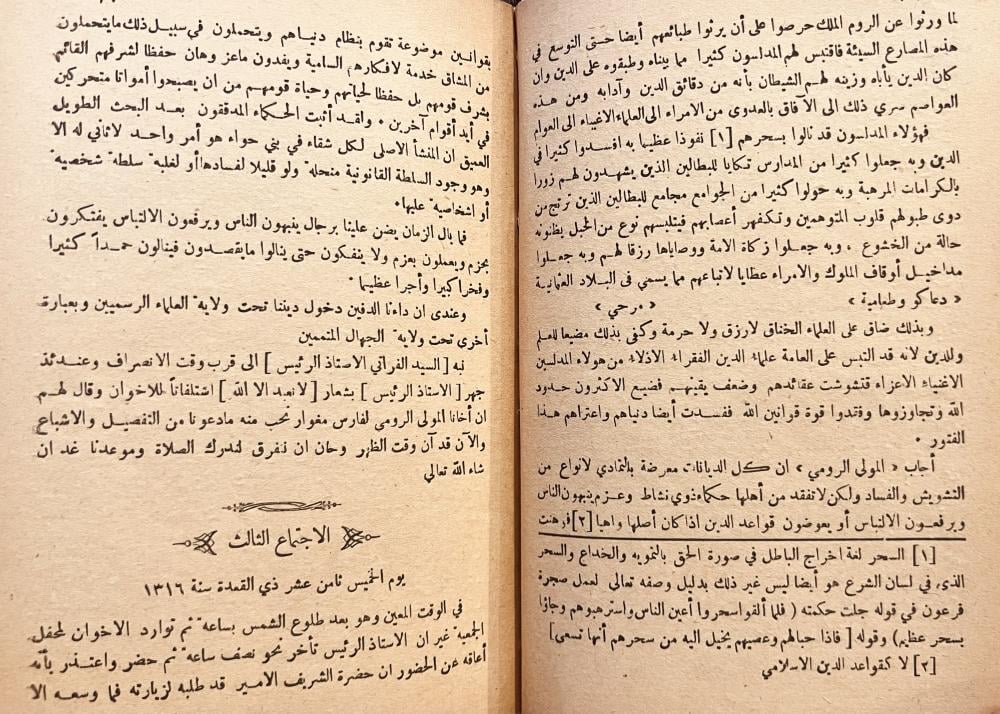 لما ورثوا عن الروم الملك حرصوا على أن يرثوا طبائعهم أيضا حتى التوسع في
هذه المصارع السيئة فاقتبس لهم المدلسون كثيرا مما بيناه وطبقوه على الدين وان
كان الدين يأباه وزينه لهم الشيطان بأنه من دقائق الدين وآدابه ومن هذه
العواصم سري ذلك الى الآفاق بالعدوى من الامراء الى العلماء الاغنياء الى العوام
فهؤلاء المدلسون قد نالوا بسحرهم [١] نفوذا عظيما به افسدوا كثيرا في
الدين وبه جعلوا كثيرا من المدارس تكايا للبطالين الذين يشهدون لهم زورا
بالكرامات المرهبة وبه حولوا كثيرا من الجوامع مجامع للبطالين الذين ترتج من
دوى طبولهم قلوب المتوهمين وتكفهر أعصابهم فيتلبسهم نوع من الخبل يظنونه
حالة من الخشوع . وبه جعلوا زكاة الامة ووصاياها رزقا لهم وبه جعلوا
مداخيل أوقاف الملوك والامراء عطايا لاتباعهم مما يسمى في البلاد العثمانية
« دعاكو وطعامية » « مرحي »
وبذلك ضاق على العلماء الخناق لارزق ولا حرمة وكفى بذلك مضيعا للعلم
وللدين لانه قد التبس على العامة علماء الدين الفقراء الاذلاء من هؤلاء المدلسين
الاغنياء الاعزاء فتشوشت عقائدهم وضعف يقينهم فضيع الاكثرون حدود
الله وتجاوزوها وفقدوا قوة قوانين الله ففسدت أيضا دنياهم واعتراهم هذا
الفتور .
أجاب « المولى الرومي » ان كل الديانات معرضة بالتمادي لانواع من
التشويش والفساد ولكن لا تفقد من أهلها حكماء ذوي نشاط وعزم ينبهون الناس
ويرفعون الالتباس أو يعوضون قواعد الدين اذا كان أصلها واهيا [٢] فوهنت
[١] السحر لغة اخراج الباطل في صورة الحق بالتمويه والخداع والسحر
الذي في لسان الشرع هو أيضا ليس غير ذلك بدليل وصفه تعالى لعمل سحرة
فرعون في قوله جلت حكمته ( فلما ألقوا سحروا أعين الناس واسترهبوهم وجاؤا
بسحر عظيم) وقوله [ فاذا حبالهم وعصيهم يخيل اليه من سحرهم أنها تسعى]
[٢] لا كقواعد الدين الاسلامي
بقوانين موضوعة تقوم بنظام دنياهم ويتحملون في سبيل ذلك ما يتحملون
من المشاق خدمة لافكارهم السامية ويفدون ماعز وهان حفظا لشرفهم القائم
بشرف قومهم بل حفظا لحياتهم وحياة قومهم من ان يصبحوا أمواتا متحركين
في أيد أقوام آخرين . ولقد أثبت الحكماء المدققون بعد البحث الطويل
العميق ان المنشأ الاصلى لكل شقاء في بني حواء هو أمر واحد لا ثاني له الا
وهو وجود السلطة القانونية منحلة ولو قليلا لفسادها أو لغلبة سلطة شخصية
أو اشخاصية عليها .
فما بال الزمان يضن علينا برجال ينبهون الناس ويرفعون الالتباس يفتكرون
بحزم ويعملون بعزم ولا ينفكون حتى ينالوا ما يقصدون فينالون حمداً كثيرا
وفخرا كبيرا وأجرا عظيما .
وعندى ان داءنا الدفين دخول ديننا تحت ولاية العلماء الرسميين وبعبارة
أخرى تحت ولاية الجهال المتعممين
نبه [السيد الفراتي الاستاذ الرئيس] الى قرب وقت الانصراف وعندئذ
جهر [الاستاذ الرئيس ] بشعار [ لا نعبد الا الله ] استلفاتاً للاخوان وقال لهم
ان أخانا المولى الرومي لفارس مغوار نحب منه مادعونا من التفصيل والاشباع
والآن قد آن وقت الظهر وحان ان نتفرق لندرك الصلاة وموعدنا غد ان
شاء الله تعالي
الاجتماع الثالث
يوم الخميس ثامن عشر ذي القعدة سنة ١٣١٦
في الوقت المعين وهو بعد طلوع الشمس بساعة تم توارد الاخوان لمحفل
الجمعية غير ان الاستاذ الرئيس تأخر نحو نصف ساعة ثم حضر واعتذر بأنه
أعاقه عن الحضور ان حضرة الشريف الامير قد طلبه لزيارته فما وسعه الا